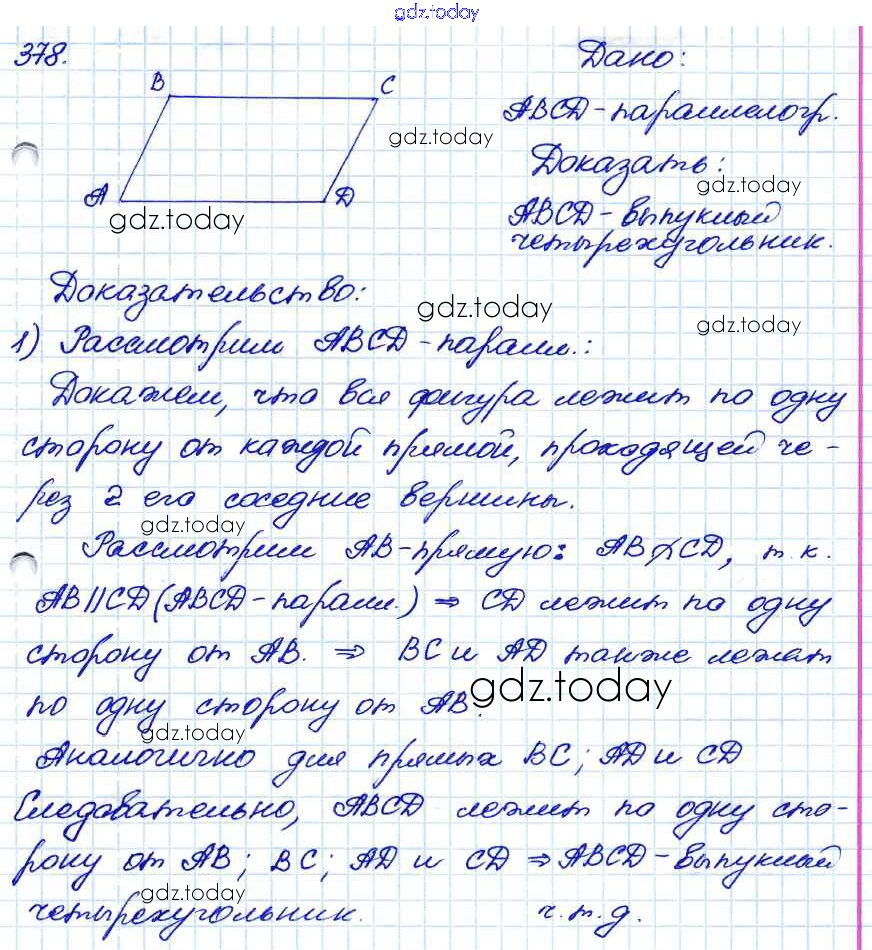 gdz.today
378.
Дано:
B
C
ABCD - параллелогр.
gdz.today
Доказать:
gdz.today
A
D
gdz.today
ABCD - выпуклый
четырехугольник.
Доказательство:
gdz.today
1) Рассмотрим ABCD - паралл.:
gdz.today
Докажем, что вся фигура лежит по одну
сторону от каждой прямой, проходящей че-
рез 2 его соседние вершины.
gdz.today
Рассмотрим AB - прямую: AB∦CD, т.к.
AB || CD (ABCD - паралл.) ⇒ CD лежит по одну
сторону от AB. ⇒ BC и AD также лежат
gdz.today
по одну сторону от AB.
gdz.today
Аналогично для прямых BC; AD и CD
Следовательно, ABCD лежит по одну сто-
рону от AB; BC; AD и CD ⇒ ABCD - выпуклый
gdz.today
четырехугольник. ч.т.д.